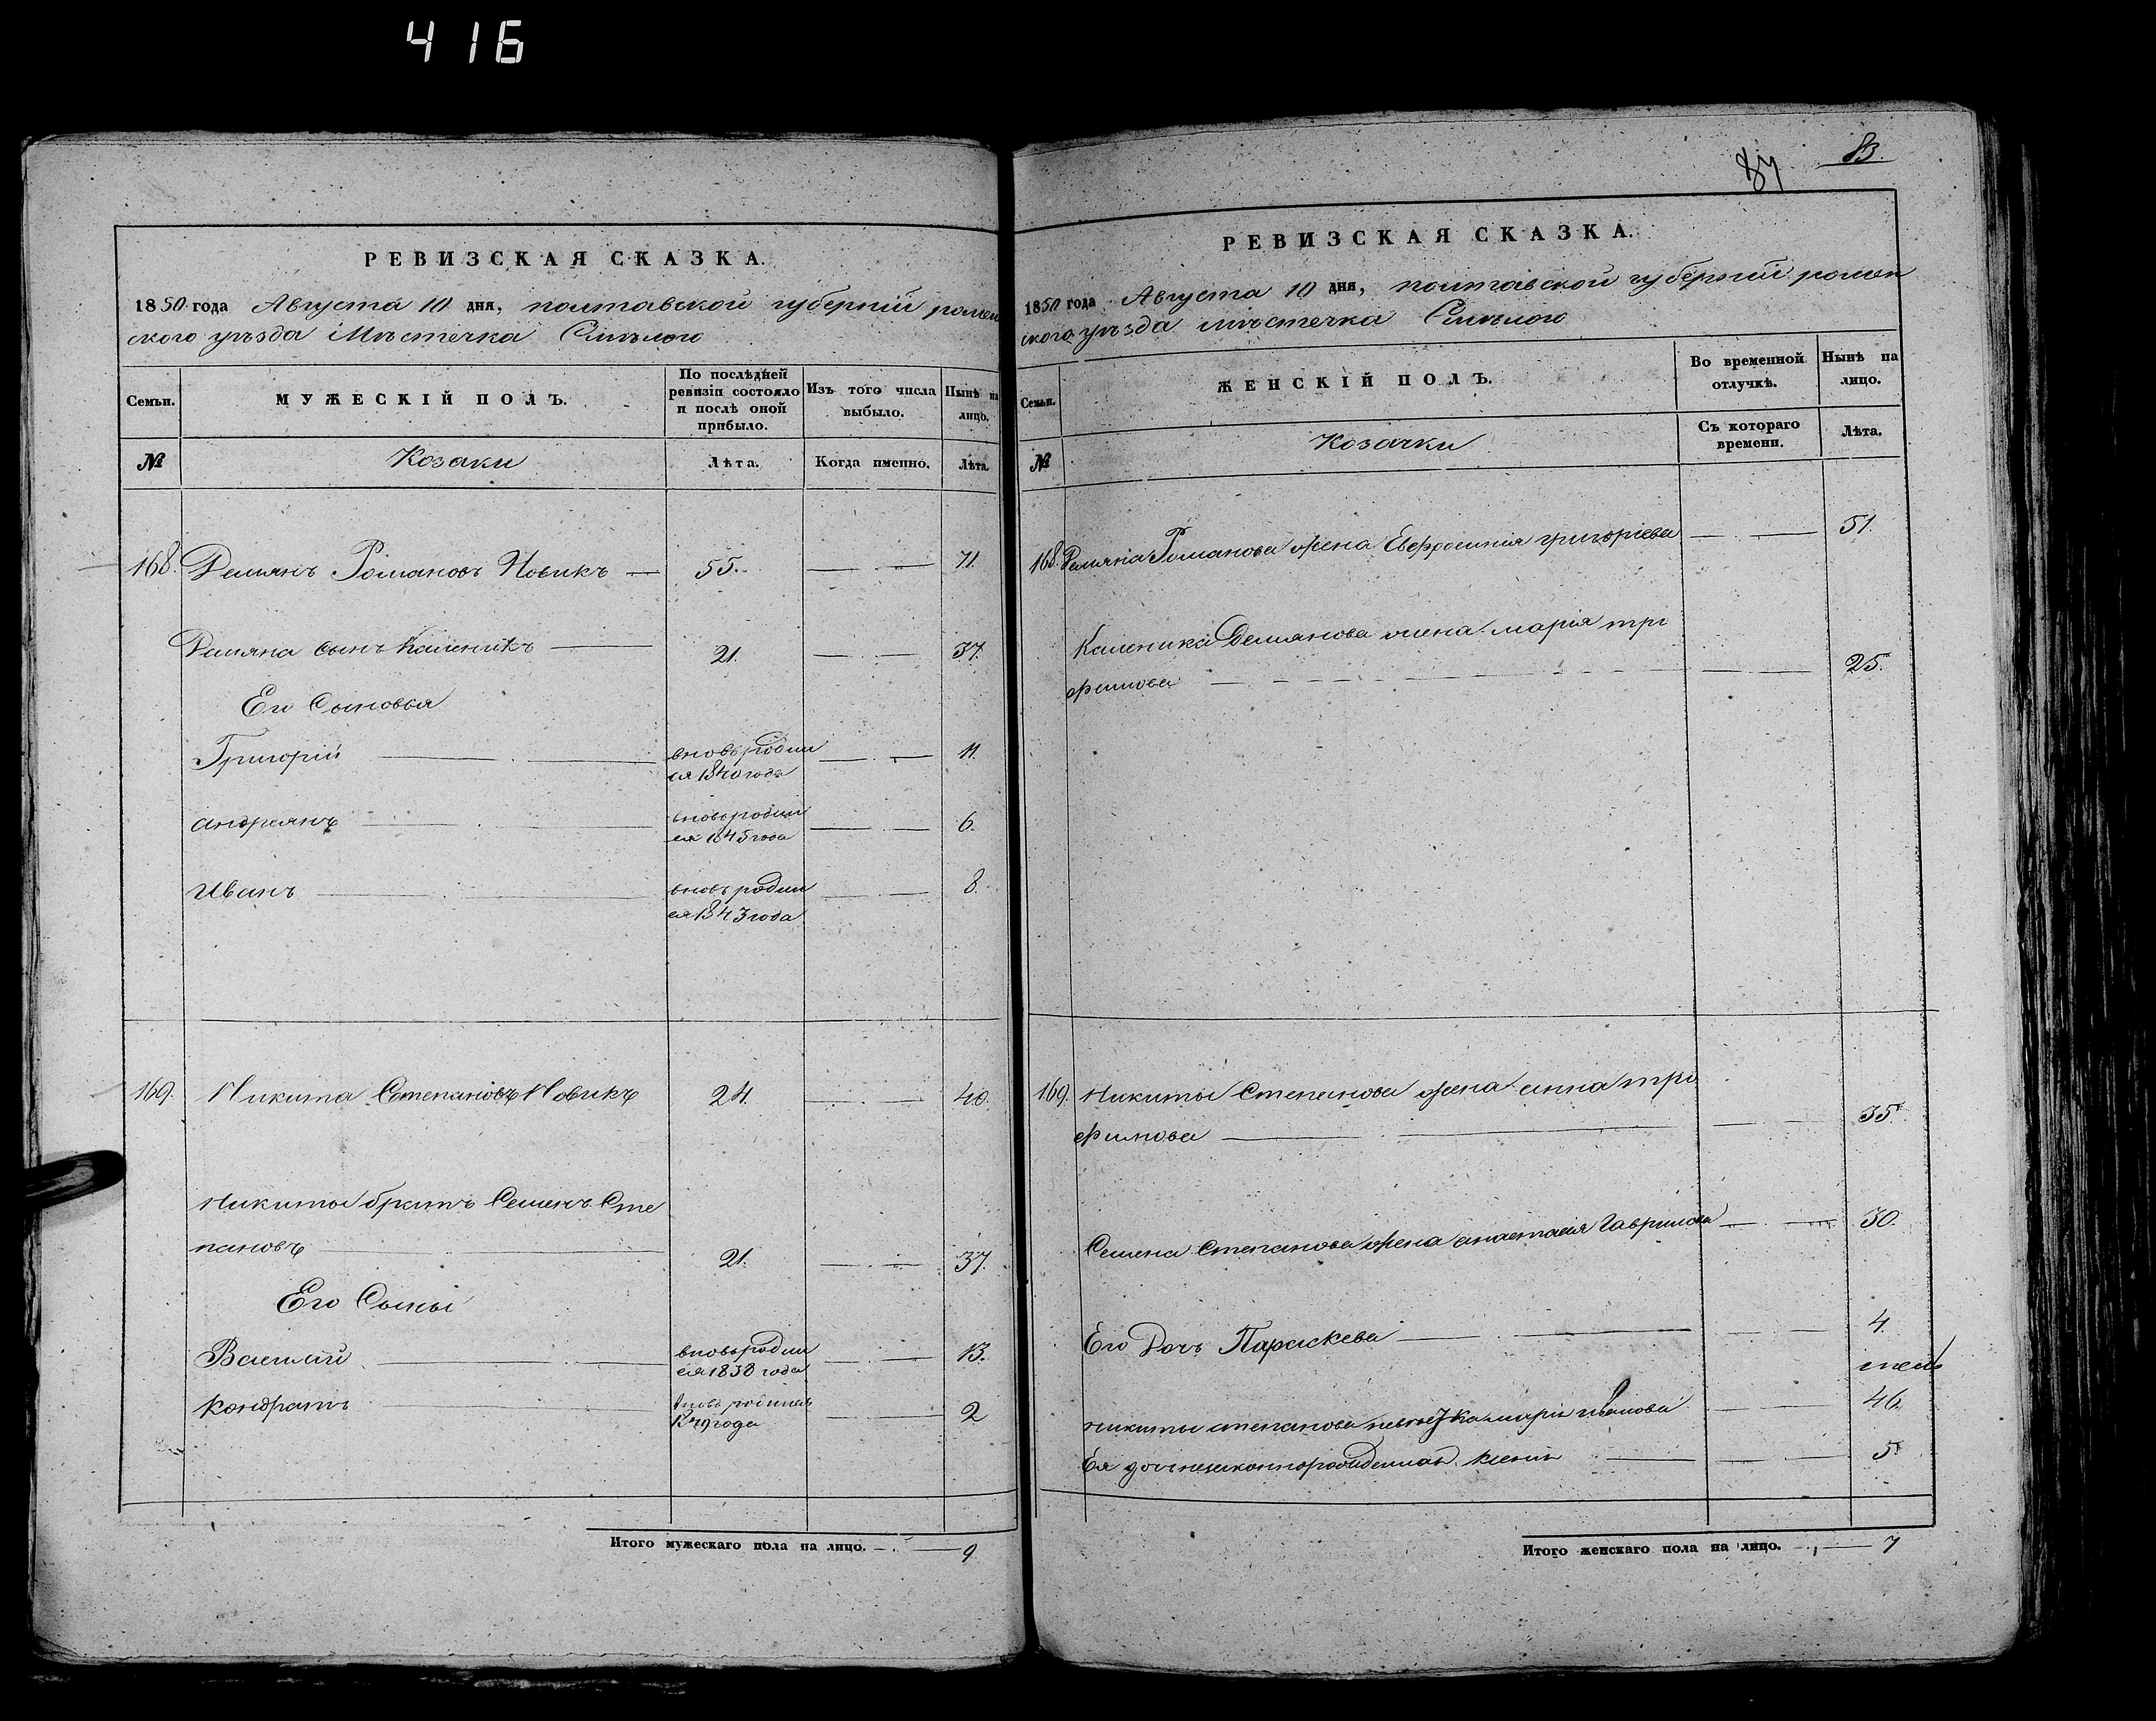 416
РЕВИЗСКАЯ СКАЗКА.
1850 года Августа 10 дня, полтавской губерній ромен
ского уѣзда Мѣстечка Смѣлого
Семьи. МУЖЕСКІЙ ПОЛЪ. По послѣдней ревизіи состояло и послѣ оной прибыло. Изъ того числа выбыло. Нынѣ на лицо.
№ Козаки Лѣта. Когда именно. Лѣта.
168. Демянъ Романовъ Новикъ 55. 71.
Демяна сынъ Каленикъ 21. 37.
Его Сыновья
Григорій вновь родил 11.
ся 1840 года
андреянъ вновь родил 6.
ся 1845 года
Иванъ вновь родил 8.
ся 1843 года
169. Никита Степановъ Новикъ 24. 40.
Никиты братъ Семенъ Сте
пановъ 21. 37.
Его Сыны
Василій вновь родил 13.
ся 1838 года
Кондратъ вновь родился 2
1849 года
Итого мужескаго пола на лицо. 9
87 83.
РЕВИЗСКАЯ СКАЗКА.
1850 года Августа 10 дня, полтавской губерній ромен
ского уѣзда мѣстечка Смѣлого
Семьи. ЖЕНСКІЙ ПОЛЪ. Во временной отлучкѣ. Нынѣ на лицо.
№ Козачки Съ котораго времени. Лѣта.
168. Демяна Романова жена Евфросинія григоріева 51.
Каленика Демянова жена марія тро
фимова 25.
169. Никиты Степанова жена анна тро
фимова 35.
Семена Степанова жена анастасія Гаврилова 30.
Его Дочь Параскева 4.
Никиты степанова марія иванова 46.
Ея дочь незаконнорожденная 5
Итого женскаго пола на лицо. 7